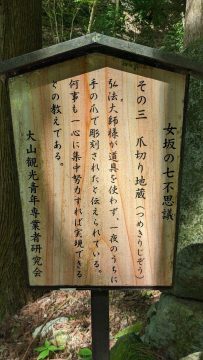 女坂の七不思議
その三　爪切り地蔵（つめきりじぞう）
弘法大師様が道具を使わず、一夜のうちに
手の爪で彫刻されたと伝えられている。
何事も一心に集中努力すれば実現できる
との教えである。
大山観光青年専業者研究会